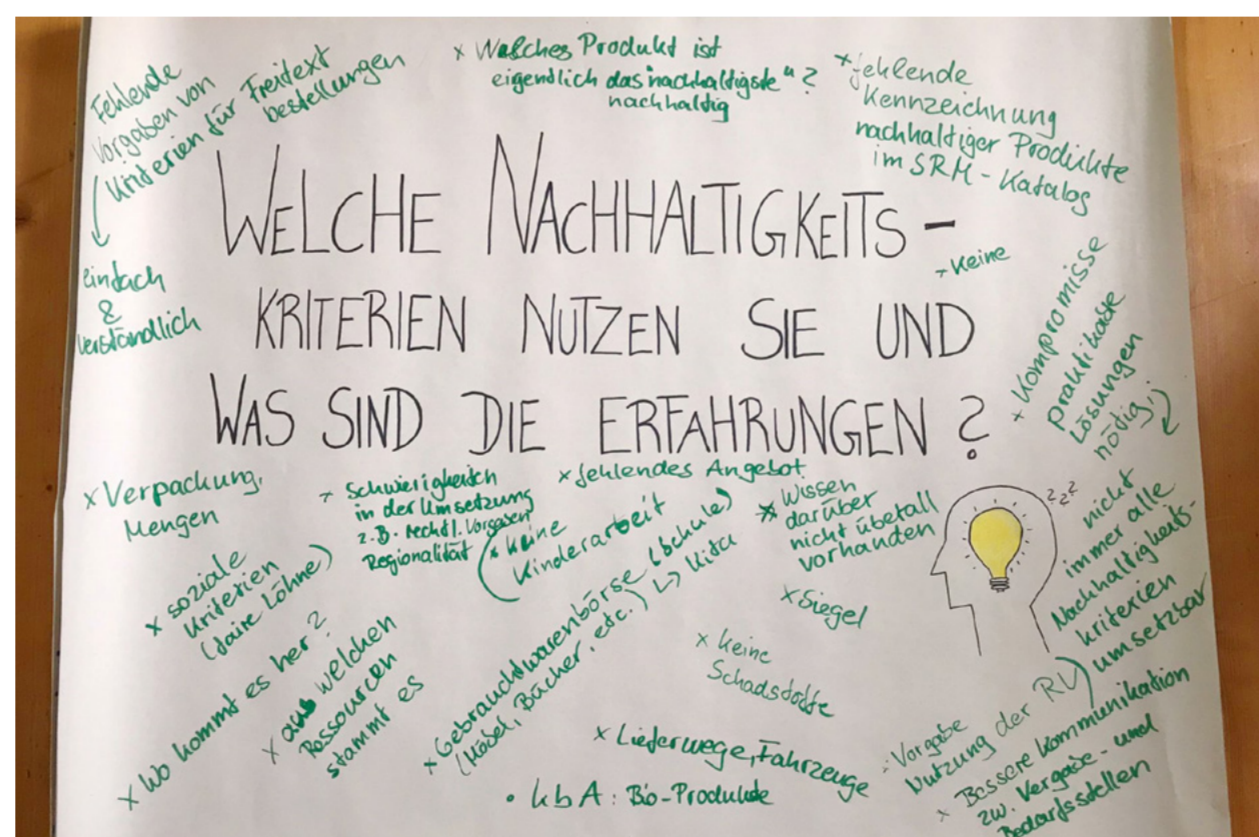 Fehlende
Vorgaben von
Kriterien für Freitext
bestellungen
einfach
&
verständlich
x Welches Produkt ist
eigentlich das "nachhaltigste" ?
nachhaltig
x fehlende
Kennzeichnung
nachhaltiger Produkte
im SRM-Katalog
WELCHE NACHHALTIGKEITS-
KRITERIEN NUTZEN SIE UND
WAS SIND DIE ERFAHRUNGEN?
+ Keine
+ Kompromisse
praktikable
Lösungen
nötig;
nicht
immer alle
Nachhaltigkeits-
kriterien
umsetzbar
x Verpackung,
Mengen
+ Schwierigkeiten
in der Umsetzung
z.B. rechtl. Vorgaben
Regionalität
x fehlendes Angebot
(x keine
Kinderarbeit
x Wissen
darüber
nicht überall
vorhanden
zzz
x soziale
Kriterien
(faire Löhne)
x Wo kommt es her?
x aus welchen
Ressourcen
stammt es
x Gebrauchtwarenbörse (Schule)
(Möbel, Bücher, etc.) ↳ Kita
x Siegel
x keine
Schadstoffe
x Lieferwege, Fahrzeuge
• kbA: Bio-Produkte
Vorgabe
Nutzung der RV)
x Bessere Kommunikation
zw. Vergabe- und
Bedarfsstellen